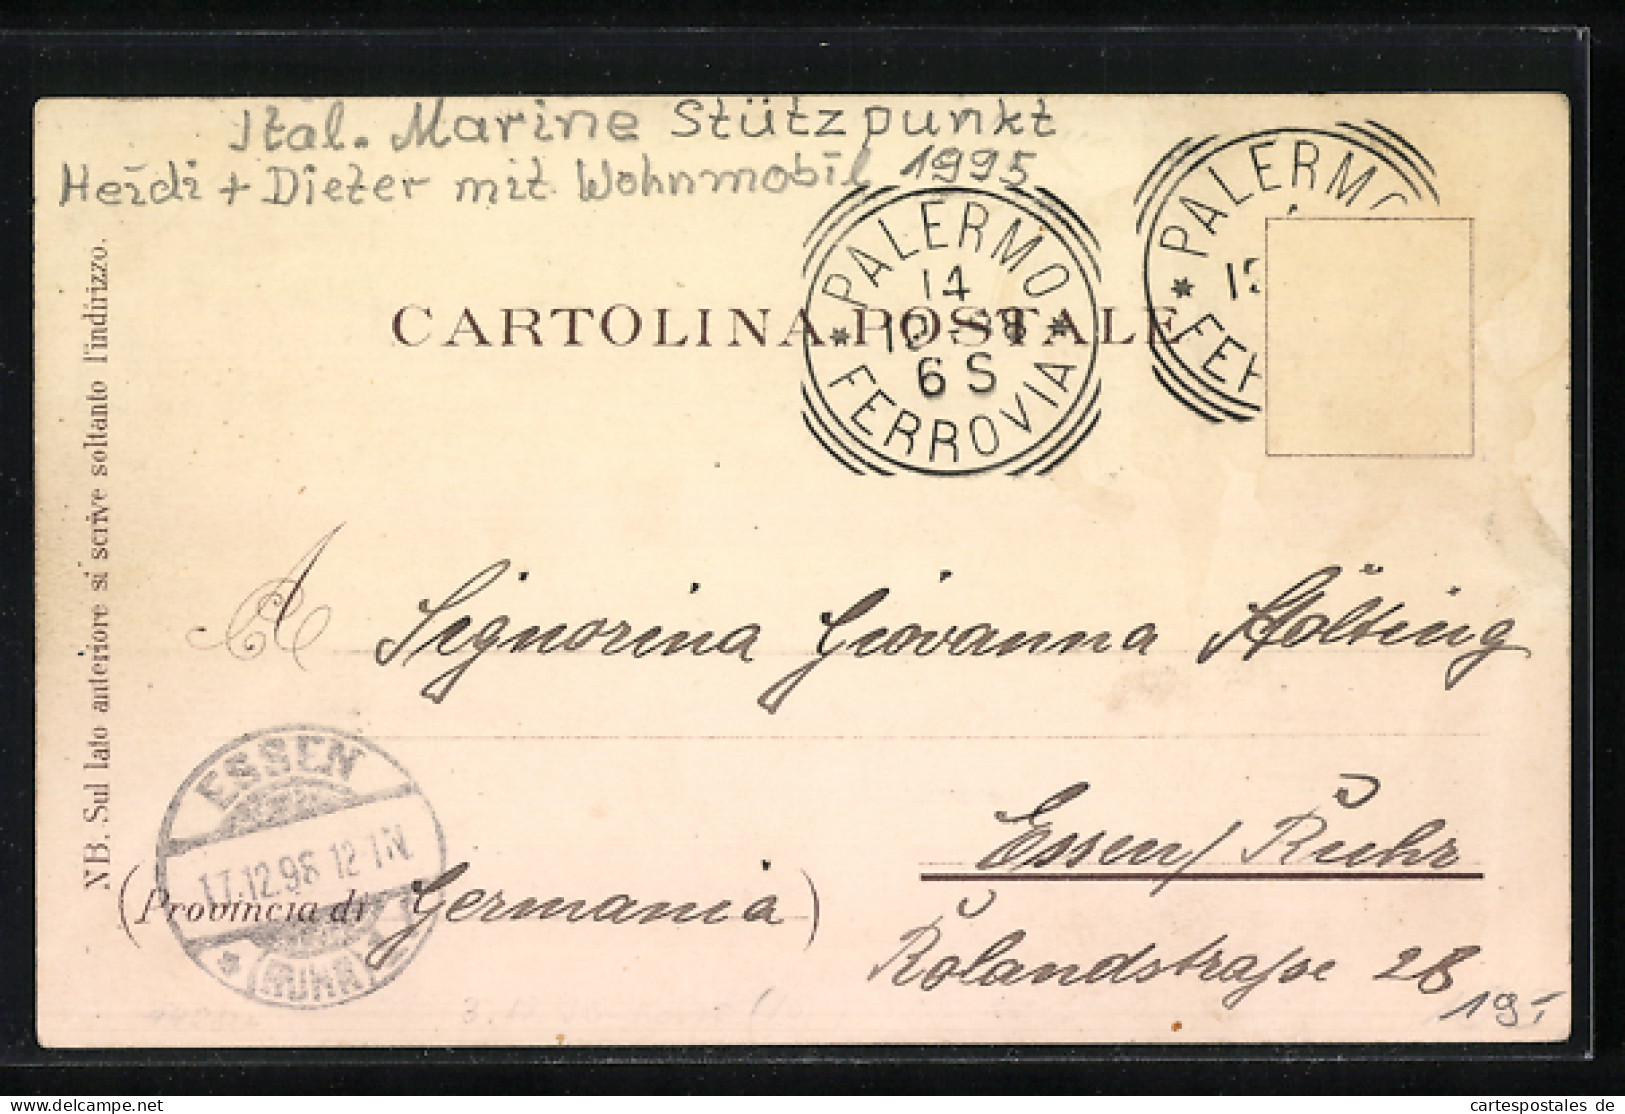 Ital. Marine Stützpunkt
Heidi + Dieter mit Wohnmobil 1995
PALERMO
14
12-98
6 S
FERROVIA
PALERMO
15
FER
CARTOLINA POSTALE
NB. Sul lato anteriore si scrive soltanto l'indirizzo.
A Signorina Giovanna Stölting
Essen/Ruhr
(Provincia di Germania)
Rolandstrasse 28
19,-
ESSEN
17.12.98 12-1N.
* (RUHR)
cartespostales de